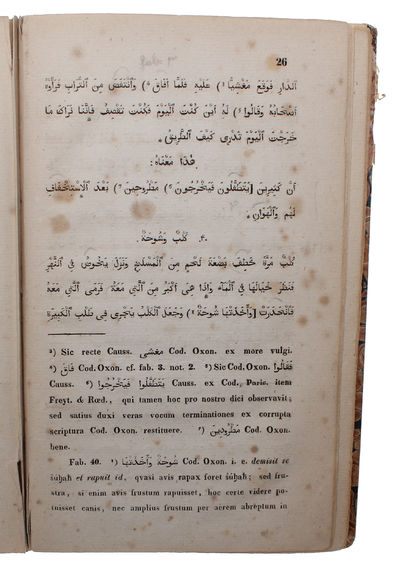 26
الدار فوقع مغشيا ¹) عليه فلما افاق ²) وانتفض من التراب فرآوه
اصحابه وقالوا ³) له اين كنت اليوم فكنت تقصف فاننا نراك ما
خرجت اليوم تدرى كيف الطريق *
هذا معناه:
ان كثيرين [يتطفلون فيخرجون ⁴) مطرودين ⁵) بعد الاستخفاف
لهم والهوان *
۴۰ كلب وشوحة *
كلب مرة خطف بضعة لحم من المسلخ ونزل يخوض فى النهر
فنظر خيالها فى الماء واذا هى اكبر من التى معه فرمى التى معه
فانحدرت [واخذتها شوحة ¹) وجعل الكلب يجرى فى طلب الكبيرة
¹) Sic recte Causs. مغشى Cod. Oxon. ex more vulgi.
²) فاق Cod. Oxon. cf. fab. 3. not. 2. ³) Sic Cod. Oxon. فقالوا
Causs. ⁴) يتطفلوا فيخرجوا Causs. ex Cod. Paris. item
Freyt. & Rœd., qui tamen hoc pro nostro dici observavit;
sed satius duxi veras vocum terminationes ex corrupta
scriptura Cod. Oxon. restituere. ⁵) مطرودين Cod. Oxon.
bene.
Fab. 40. ¹) شوحة واخذتها Cod. Oxon. i. e. demisit se
šúḥaħ et rapuit id, qvasi avis rapax foret šúḥaħ; sed fru-
stra, si enim avis frustum rapuisset, hoc certe videre po-
tuisset canis, nec amplius frustum per aerem abreptum in